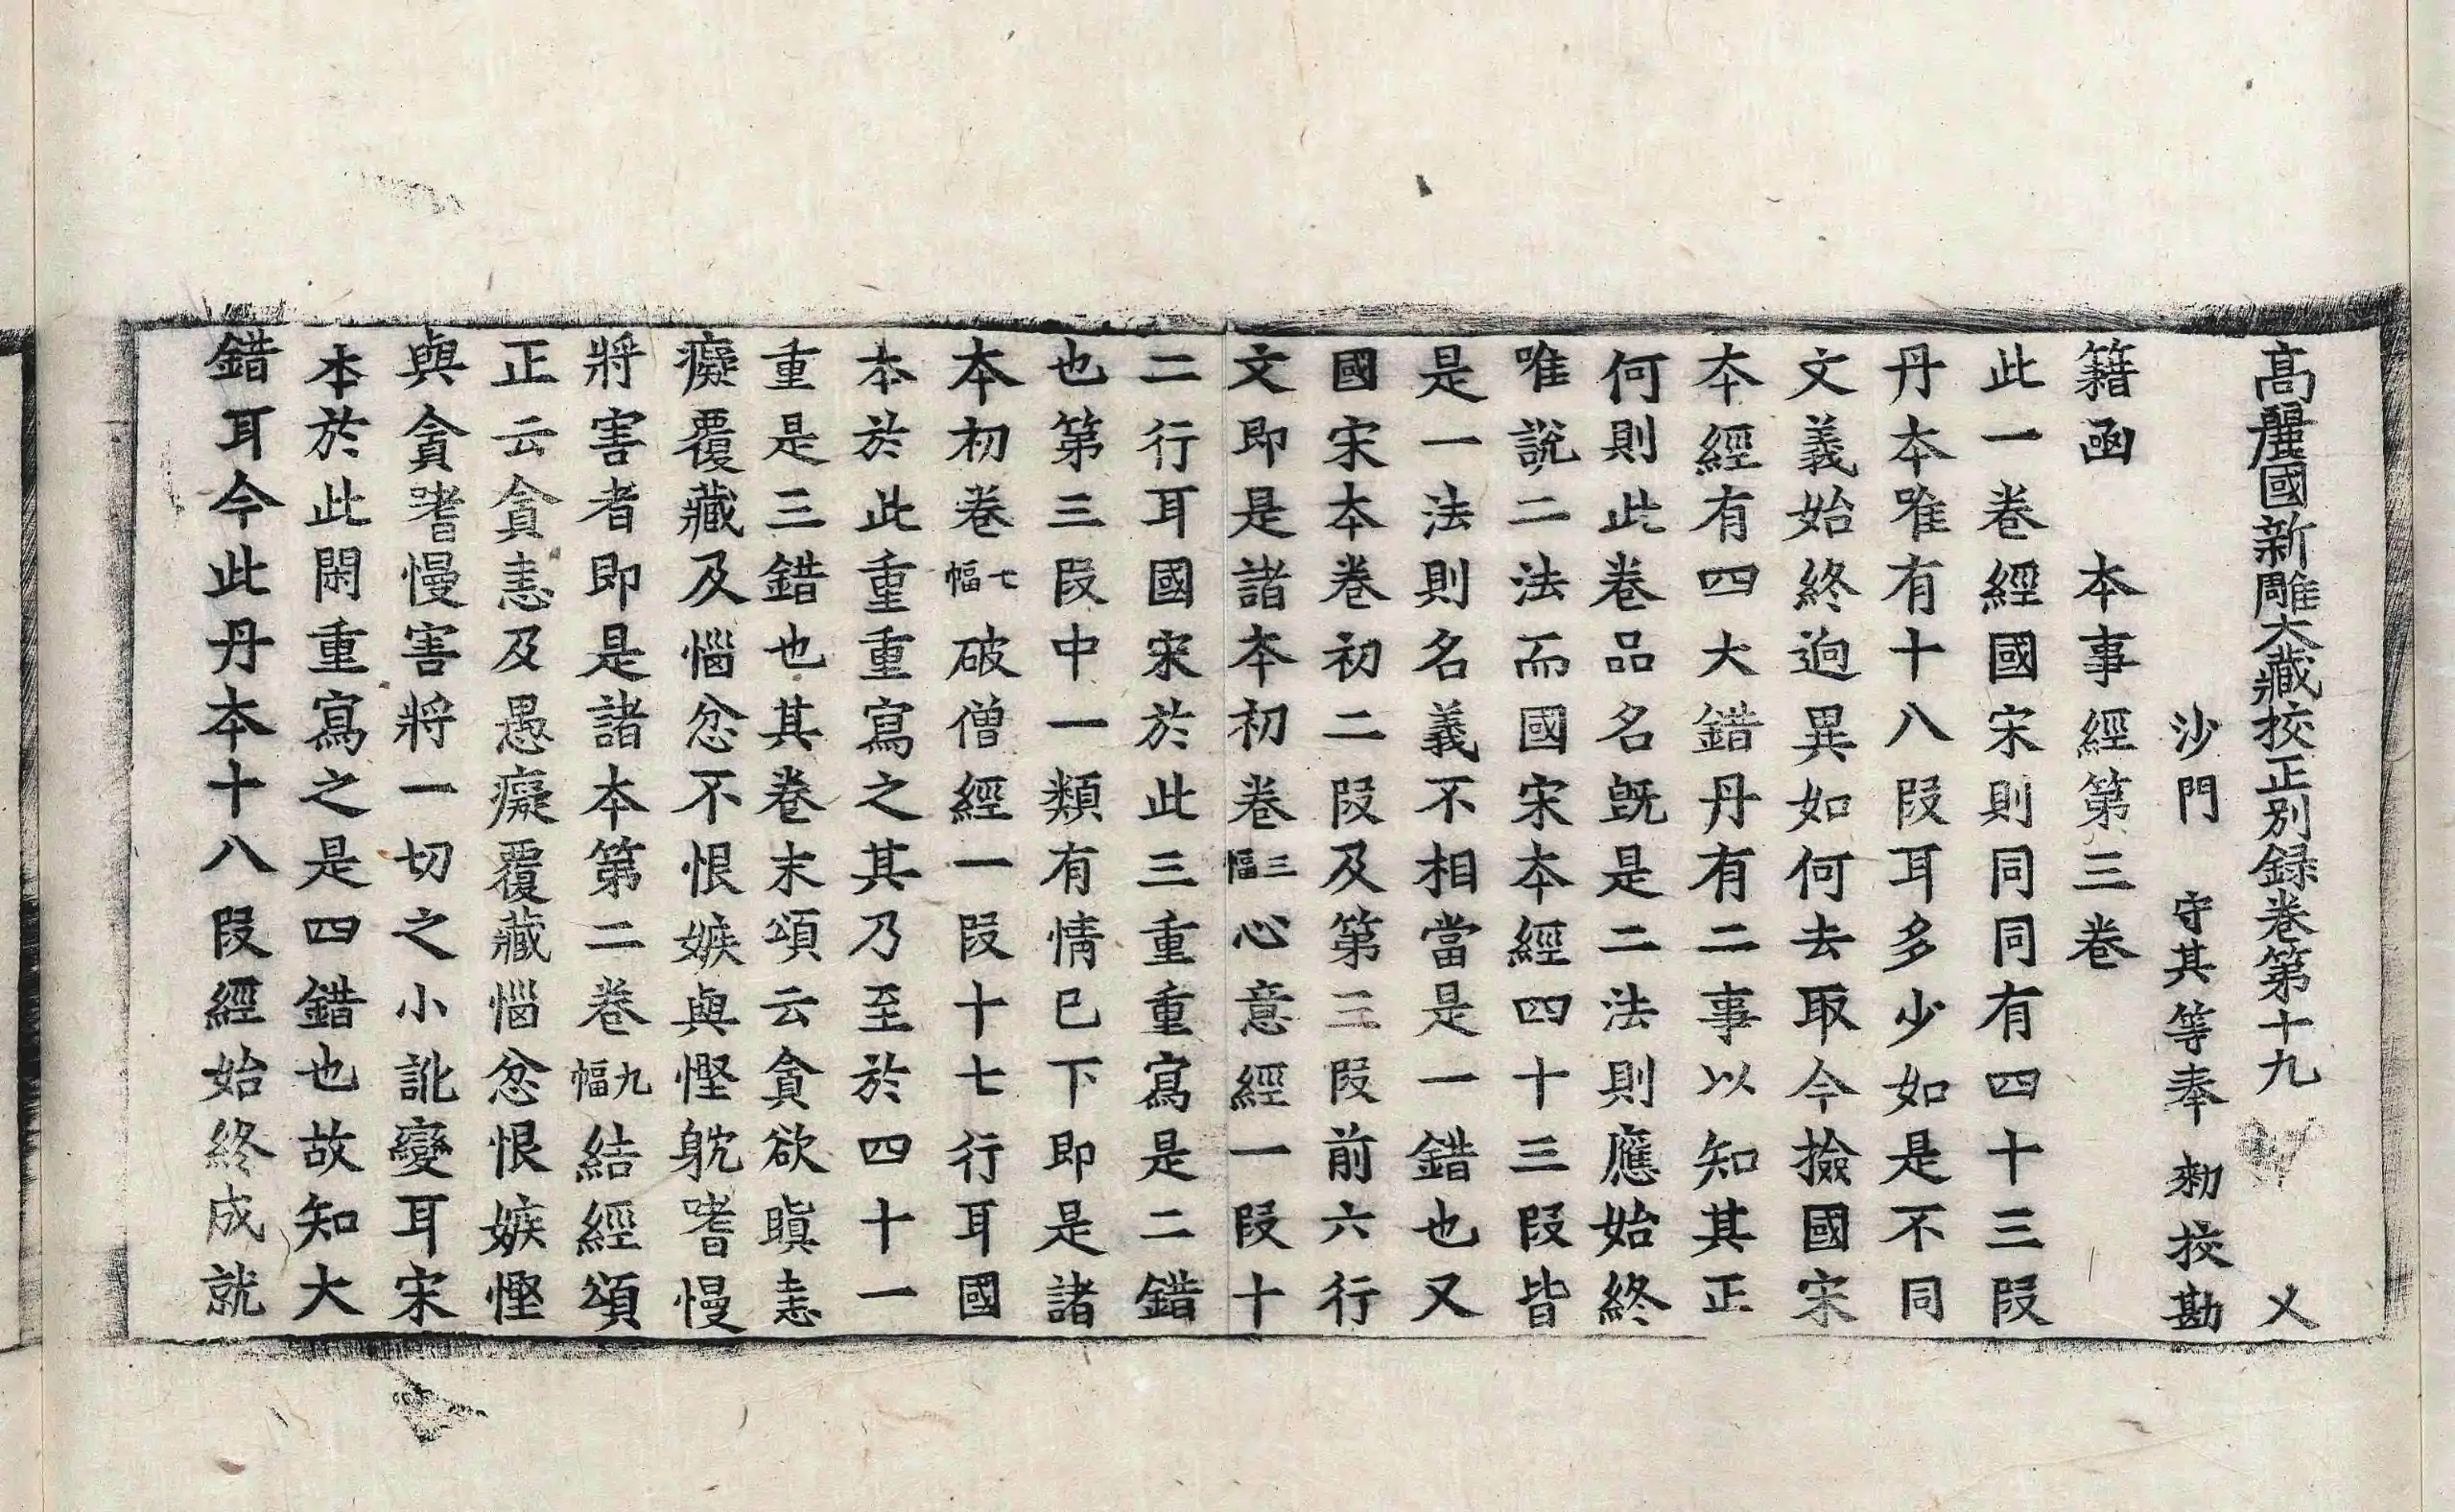 高麗國新雕大藏校正別録卷第十九 㐅
沙門 守其等奉 勑挍勘
籍函 本事經第三卷
此一卷經國宋則同同有四十三段
丹本唯有十八段耳多少如是不同
文義始終逈異如何去取今撿國宋
本經有四大錯丹有二事以知其正
何則此卷品名旣是二法則應始終
唯說二法而國宋本經四十三段皆
是一法則名義不相當是一錯也又
國宋本卷初二段及第三段前六行
文即是諸本初卷三幅心意經一段十
二行耳國宋於此三重重寫是二錯
也第三段中一類有情已下即是諸
本初卷七幅破僧經一段十七行耳國
本於此重重寫之其乃至於四十一
重是三錯也其卷末頌云貪欲瞋恚
癡覆藏及惱忿不恨嫉與慳躭嗜慢
將害者即是諸本第二卷九幅結經頌
正云貪恚及愚癡覆藏惱忿恨嫉慳
與貪嗜慢害將一切之小訛變耳宋
本於此閑重寫之是四錯也故知大
錯耳今此丹本十八段經始終成就